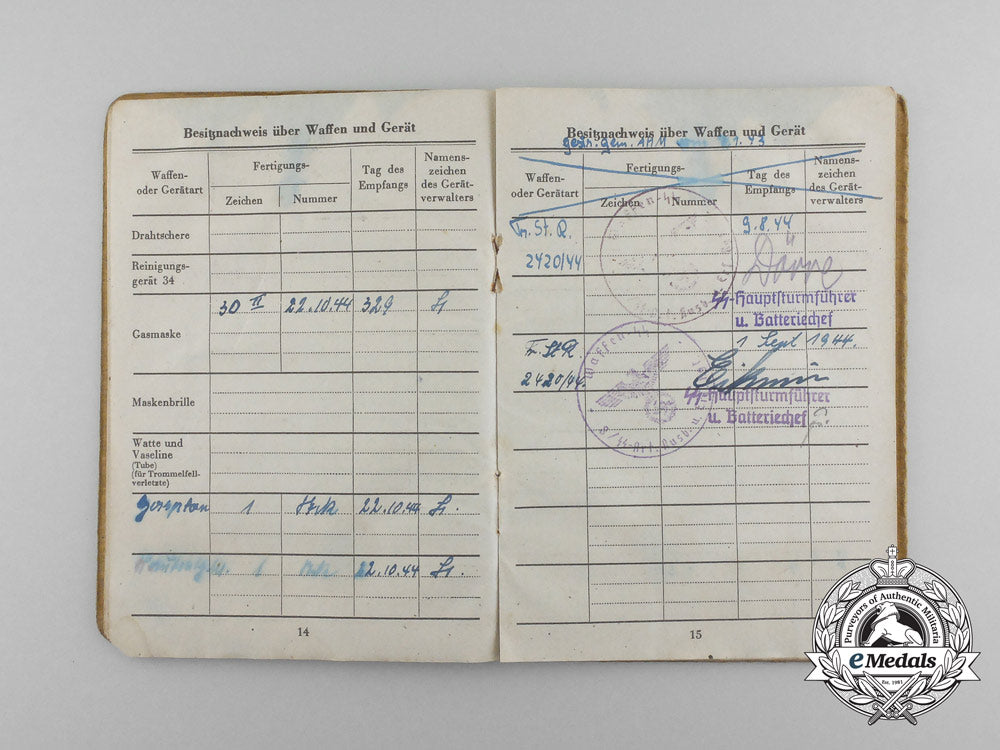 Besitznachweis über Waffen und Gerät
Waffen-
oder Gerätart
Fertigungs-
Zeichen
Nummer
Tag des
Empfangs
Namens-
zeichen
des Gerät-
verwalters
Drahtschere
Reinigungs-
gerät 34
Gasmaske
30 II 22.10.44 329
Maskenbrille
Watte und
Vaseline
(Tube)
(für Trommelfell-
verletzte)
1 22.10.44
1 22.10.44
14
Besitznachweis über Waffen und Gerät
Waffen-
oder Gerätart
Fertigungs-
Zeichen
Nummer
Tag des
Empfangs
Namens-
zeichen
des Gerät-
verwalters
Tr. St. R. 9.8.44
2420/44
Waffen-SS
Dörre
SS-Hauptsturmführer
u. Batteriechef
Tr. St R 1 Sept 1944.
2420/44.
Waffen-SS
SS-Hauptsturmführer
u. Batteriechef
15
Purveyors of Authentic Militaria
eMedals
Est. 1981